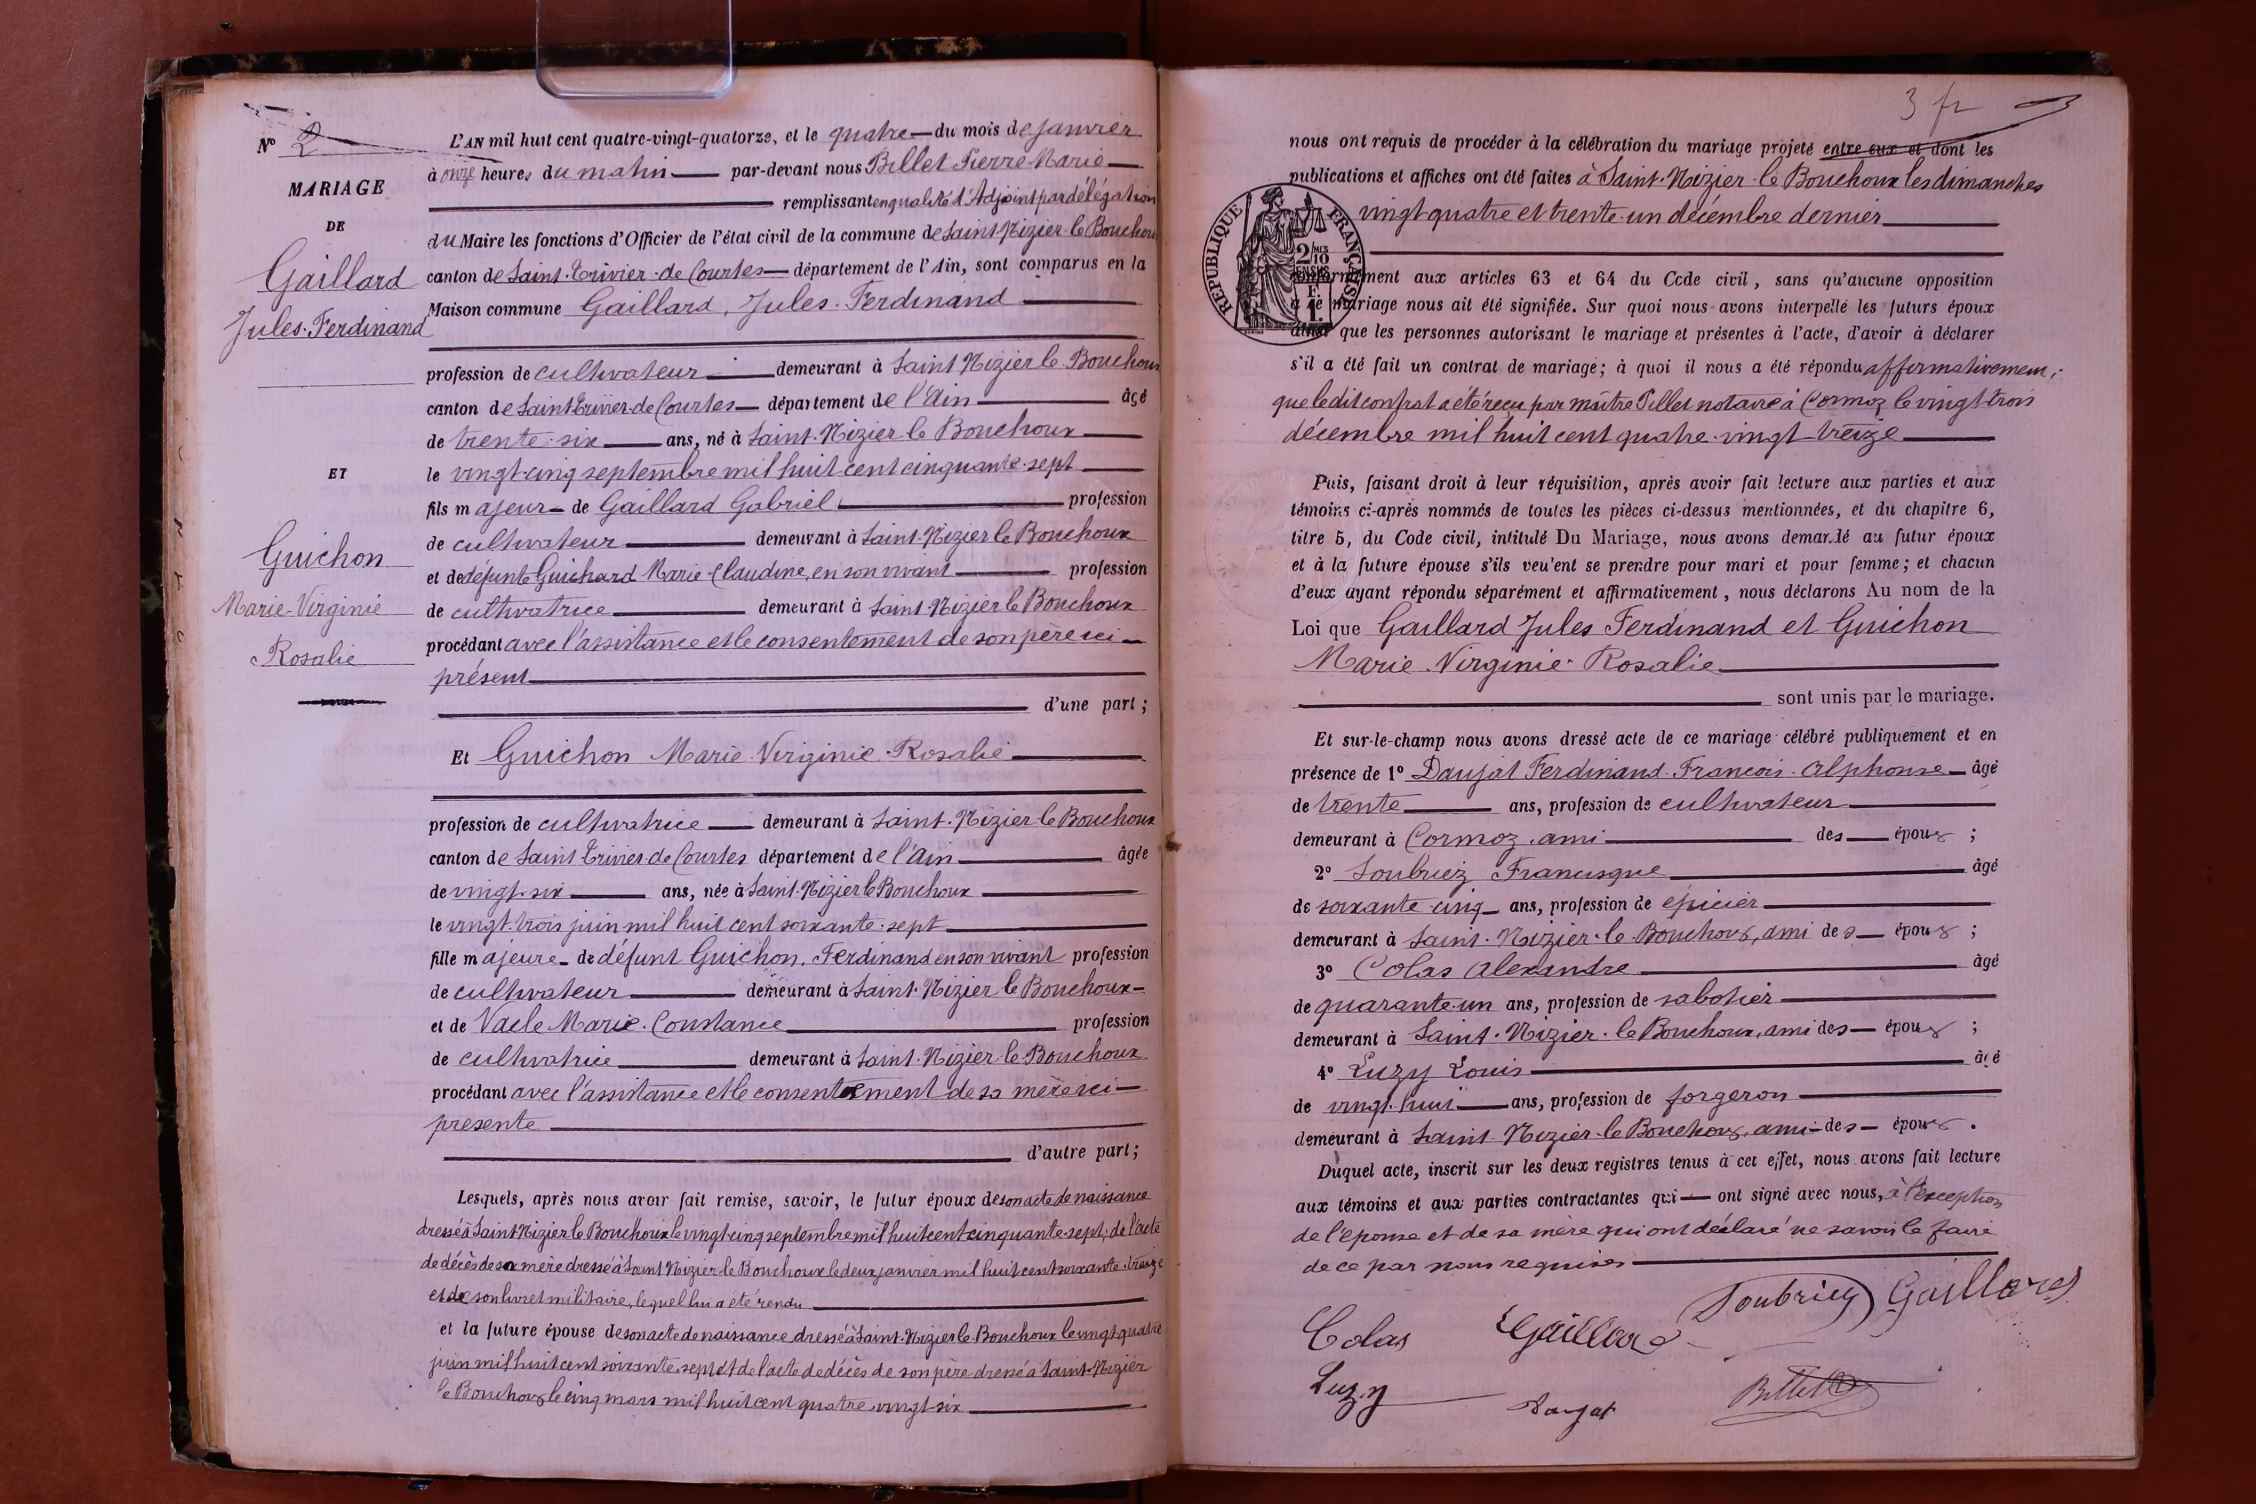 Nº 2
MARIAGE
DE
Gaillard
Jules-Ferdinand
ET
Guichon
Marie-Virginie
Rosalie
L'AN mil huit cent quatre-vingt-quatorze, et le quatre du mois de janvier
à onze heures du matin par-devant nous Billet Pierre Marie
remplissant en qualité d'Adjoint par délégation
du Maire les fonctions d'Officier de l'état civil de la commune de Saint-Nizier-le-Bouchoux
canton de Saint-Trivier-de-Courtes département de l'Ain, sont comparus en la
Maison commune Gaillard, Jules-Ferdinand
profession de cultivateur demeurant à Saint Nizier le Bouchoux
canton de Saint Trivier-de-Courtes département de l'Ain âgé
de trente-six ans, né à Saint-Nizier le Bouchoux
le vingt-cinq septembre mil huit cent cinquante-sept
fils majeur de Gaillard Gabriel profession
de cultivateur demeurant à Saint-Nizier le Bouchoux
et de défunte Guichard Marie-Claudine, en son vivant profession
de cultivatrice demeurant à Saint-Nizier le Bouchoux
procédant avec l'assistance et le consentement de son père ici
présent
d'une part ;
Et Guichon Marie-Virginie-Rosalie
profession de cultivatrice demeurant à Saint-Nizier-le Bouchoux
canton de Saint Trivier-de-Courtes département de l'Ain âgée
de vingt-six ans, née à Saint-Nizier le Bouchoux
le vingt-trois juin mil huit cent soixante-sept
fille majeure de défunt Guichon, Ferdinand en son vivant profession
de cultivateur demeurant à Saint-Nizier le Bouchoux
et de Vacle Marie-Constance profession
de cultivatrice demeurant à Saint-Nizier-le-Bouchoux
procédant avec l'assistance et le consentement de sa mère ici
présente
d'autre part ;
Lesquels, après nous avoir fait remise, savoir, le futur époux de son acte de naissance
dressé à Saint Nizier le Bouchoux le vingt-cinq septembre mil huit cent cinquante-sept, de l'acte
de décès de sa mère dressé à Saint Nizier-le Bouchoux le deux janvier mil huit cent soixante-treize
et de son livret militaire, lequel lui a été rendu
et la future épouse de son acte de naissance dressé à Saint-Nizier-le-Bouchoux le vingt-quatre
juin mil huit cent soixante-sept et de l'acte de décès de son père dressé à Saint-Nizier
le Bouchoux le cinq mars mil huit cent quatre-vingt-six
3 fr
nous ont requis de procéder à la célébration du mariage projeté entre eux et dont les
publications et affiches ont été faites à Saint-Nizier-le Bouchoux les dimanches
vingt-quatre et trente-un décembre dernier
RÉPUBLIQUE FRANÇAISE
2/10
EN SUS
1 F.
conformément aux articles 63 et 64 du Code civil, sans qu'aucune opposition
à ce mariage nous ait été signifiée. Sur quoi nous avons interpellé les futurs époux
ainsi que les personnes autorisant le mariage et présentes à l'acte, d'avoir à déclarer
s'il a été fait un contrat de mariage; à quoi il nous a été répondu affirmativement,
que ledit contrat a été reçu par maître Pillet notaire à Cormoz le vingt-trois
décembre mil huit cent quatre-vingt-treize
Puis, faisant droit à leur réquisition, après avoir fait lecture aux parties et aux
témoins ci-après nommés de toutes les pièces ci-dessus mentionnées, et du chapitre 6,
titre 5, du Code civil, intitulé Du Mariage, nous avons demandé au futur époux
et à la future épouse s'ils veulent se prendre pour mari et pour femme; et chacun
d'eux ayant répondu séparément et affirmativement, nous déclarons Au nom de la
Loi que Gaillard Jules Ferdinand et Guichon
Marie-Virginie-Rosalie
sont unis par le mariage.
Et sur-le-champ nous avons dressé acte de ce mariage célébré publiquement et en
présence de 1º Daujat Ferdinand-François-Alphonse âgé
de trente ans, profession de cultivateur
demeurant à Cormoz, ami des époux ;
2º Soubriez Francisque âgé
de soixante-cinq ans, profession de épicier
demeurant à Saint-Nizier-le-Bouchoux, ami des époux ;
3º Colas Alexandre âgé
de quarante-un ans, profession de sabotier
demeurant à Saint-Nizier-le Bouchoux, ami des époux ;
4º Luzy Louis âgé
de vingt-huit ans, profession de forgeron
demeurant à Saint-Nizier-le Bouchoux, ami des époux.
Duquel acte, inscrit sur les deux registres tenus à cet effet, nous avons fait lecture
aux témoins et aux parties contractantes qui ont signé avec nous, à l'exception
de l'épouse et de sa mère qui ont déclaré ne savoir le faire
de ce par nous requises
Colas Gaillard Soubriez Gaillard
Luzy Daujat Billet